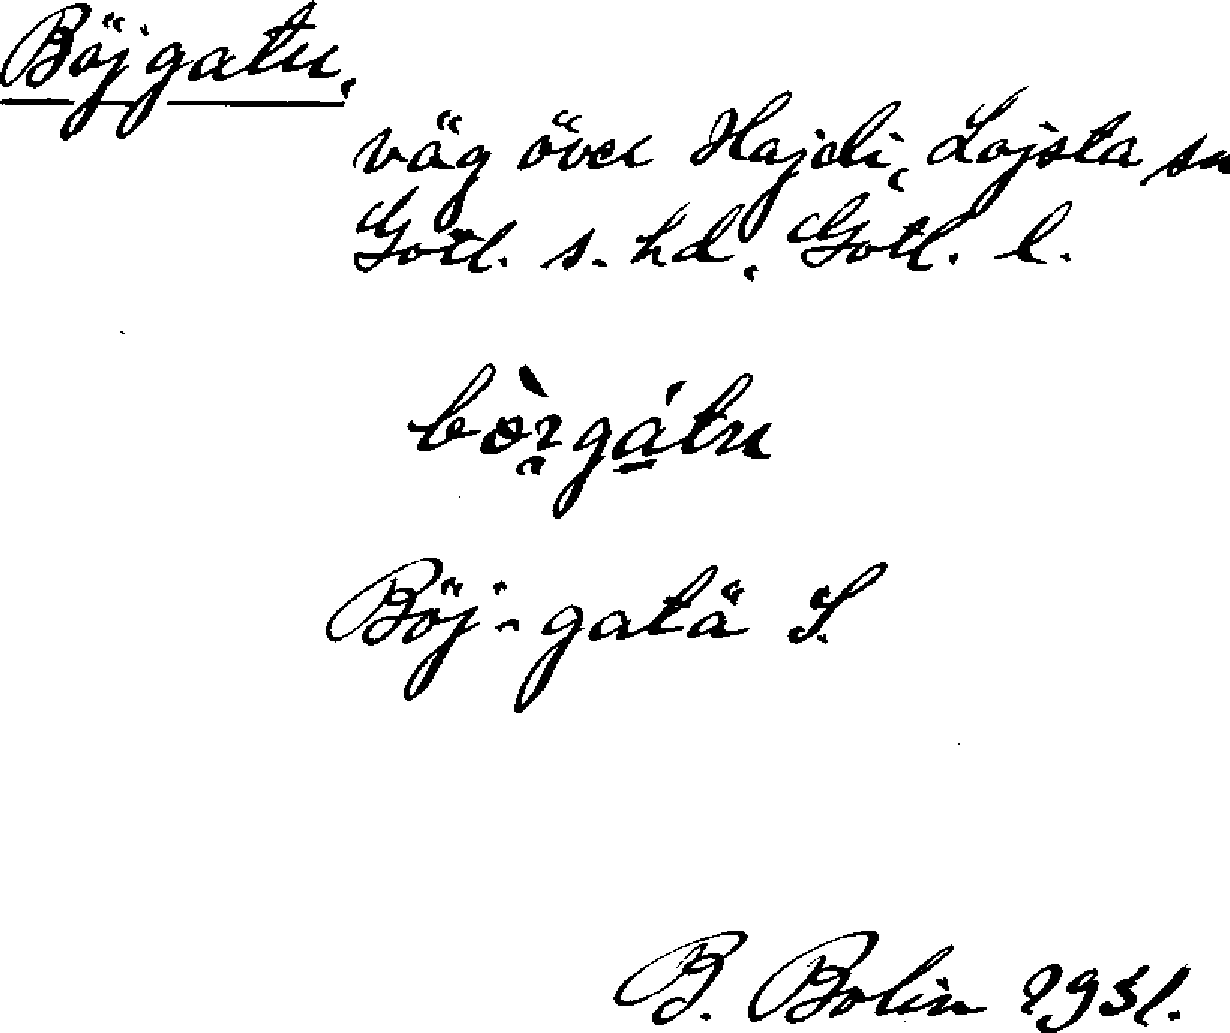 Böjgatu,
väg över Hajdi, Lojsta sn
Gotl. s. hd, Gotl. l.
bòꝛgátu
Böj-gatä S.
B. Bolin 1931.